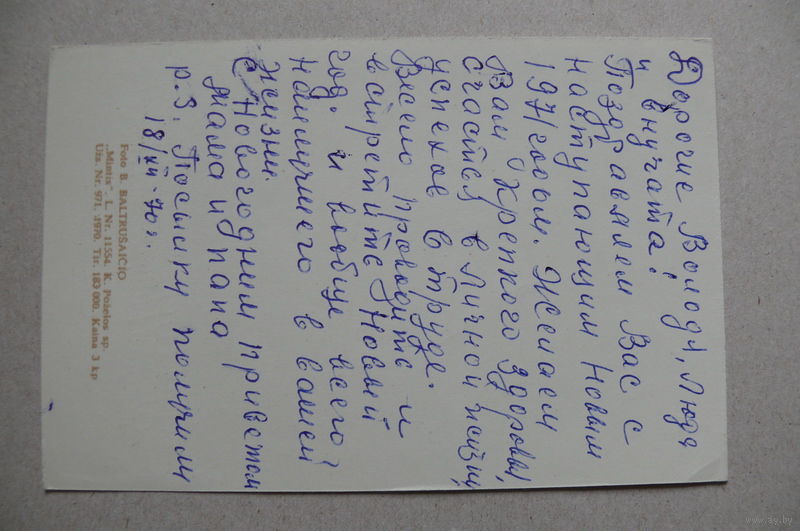 Дорогие Володя, Люда
и внучата!
Поздравляем Вас с
наступающим Новым
1971 годом. Желаем
Вам крепкого здоровья,
счастья в личной жизни,
успехов в труде.
Весело проводите и
встретите Новый
год. и вообще всего
наилучшего в вашей
жизни.
С Новогодним приветом
мама и папа
p.S. Посылку получили
18/XII-70г.
Foto B. BALTRUŠAIČIO
„Mintis“. L. Nr. 11554. K. Poželos sp.
Užs. Nr. 971. 1970. Tir. 183 000. Kaina 3 kp
www.ay.by